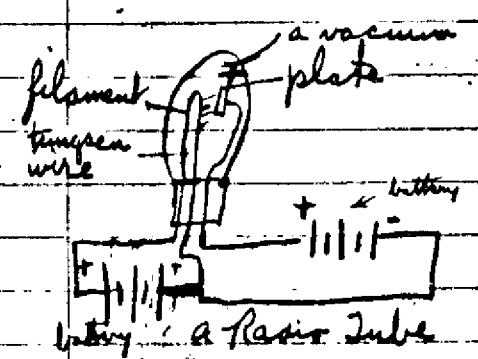 a vacuum
plate
filament
tungsen
wire
battery
+ -
+ +
battery : a Radio Tube